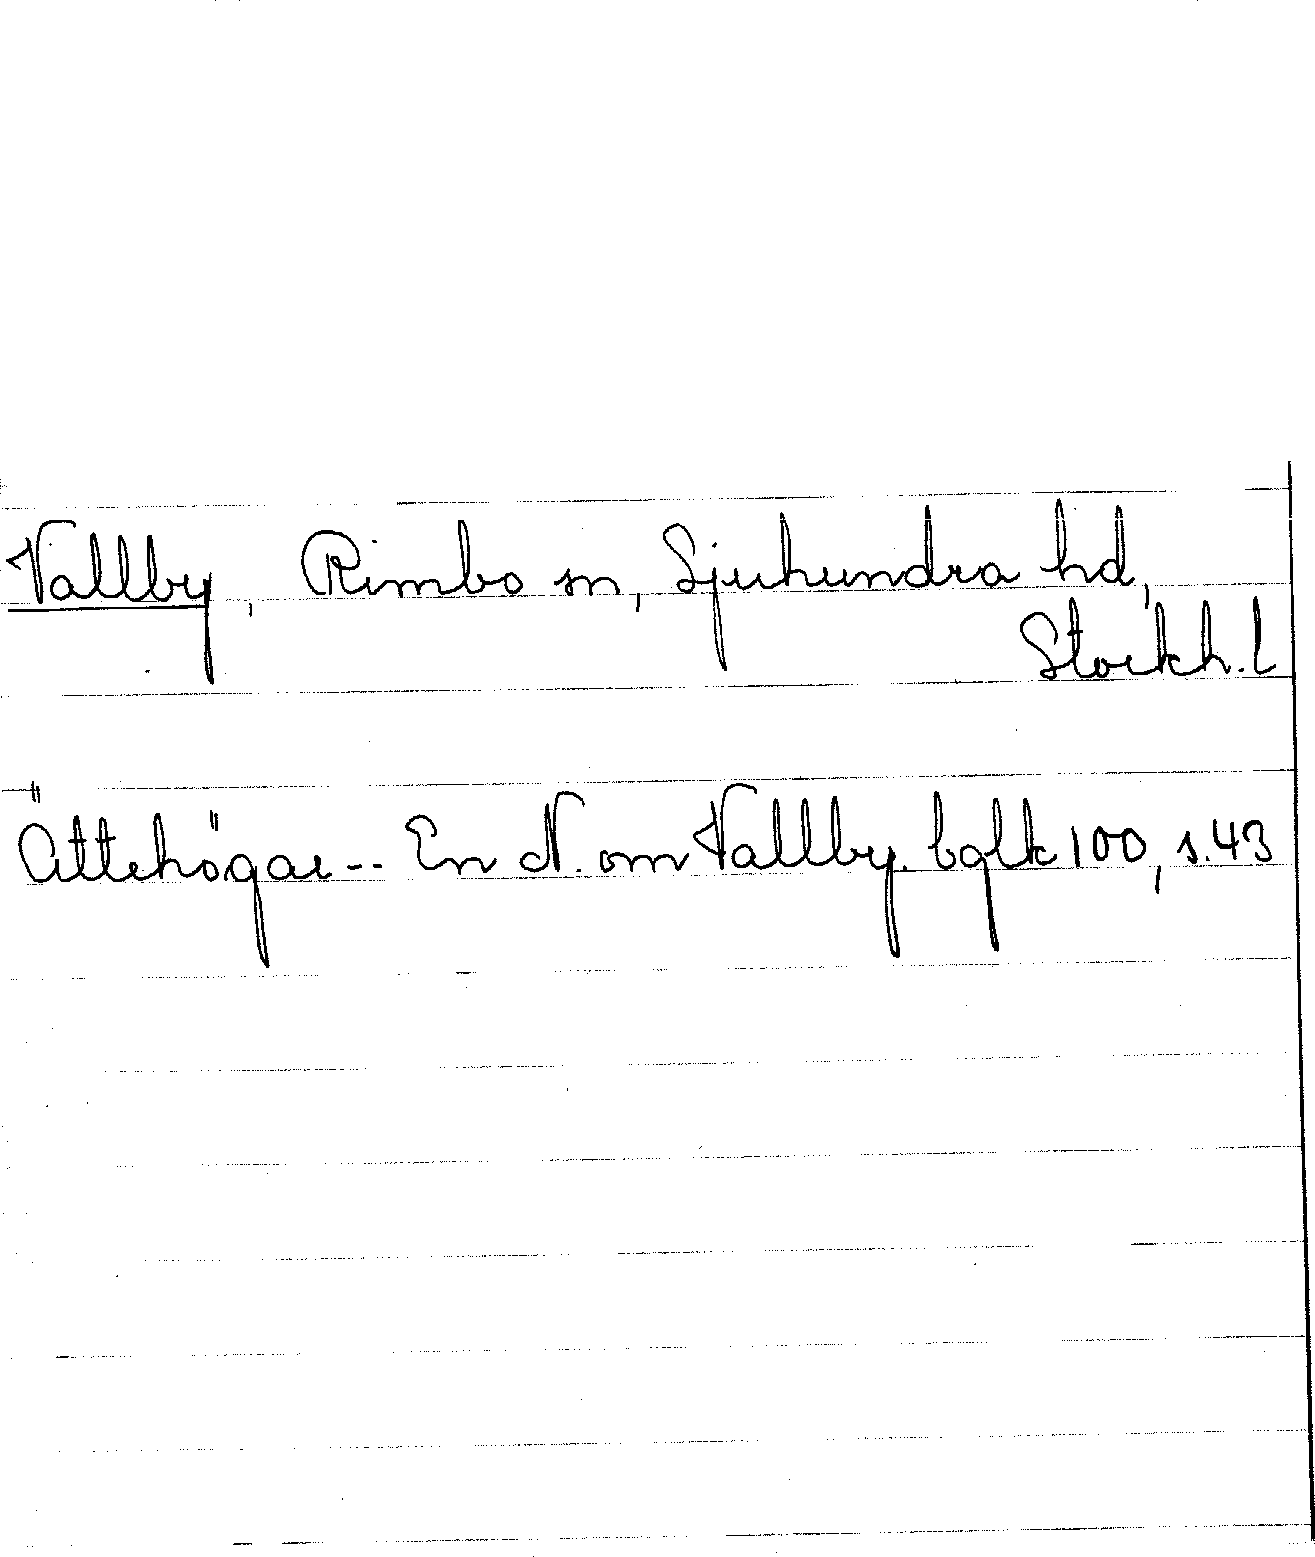 Vallby, Rimbo sn, Sjuhundra hd,
Stockh. l
Ättehögar -- En N. om Vallby. bglk 100, s. 43